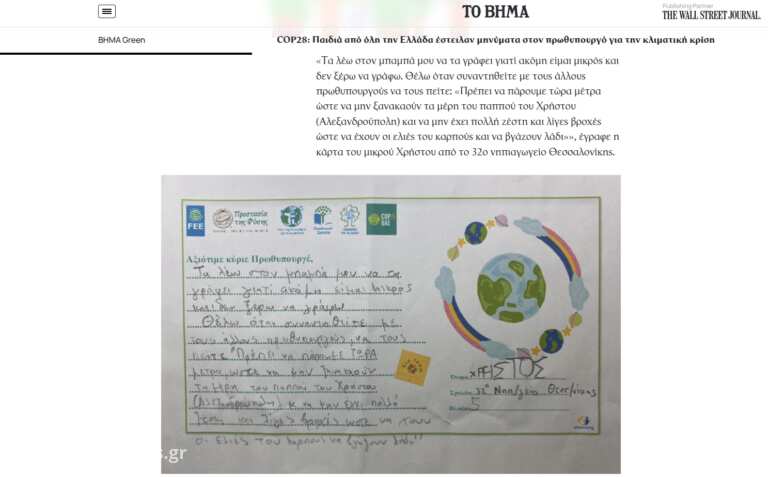 ΤΟ ΒΗΜΑ
Publishing Partner
THE WALL STREET JOURNAL.
BHMA Green
COP28: Παιδιά από όλη την Ελλάδα έστειλαν μηνύματα στον πρωθυπουργό για την κλιματική κρίση
«Τα λέω στον μπαμπά μου να τα γράφει γιατί ακόμη είμαι μικρός και
δεν ξέρω να γράφω. Θέλω όταν συναντηθείτε με τους άλλους
πρωθυπουργούς να τους πείτε: «Πρέπει να πάρουμε τώρα μέτρα
ώστε να μην ξανακαούν τα μέρη του παππού του Χρήστου
(Αλεξανδρούπολη) και να μην έχει πολλή ζέστη και λίγες βροχές
ώστε να έχουν οι ελιές του καρπούς και να βγάζουν λάδι»», έγραφε η
κάρτα του μικρού Χρήστου από το 32ο νηπιαγωγείο Θεσσαλονίκης.
FEE
Προστασία
της Φύσης
COP
Αξιότιμε κύριε Πρωθυπουργέ,
Τα λέω στον μπαμπά μου να τα
γράφει γιατί ακόμα είμαι μικρός
και δεν ξέρω να γράφω
Θέλω όταν συναντηθείτε με
τους άλλους πρωθυπουργούς να τους
πείτε "Πρέπει να πάρουμε ΤΩΡΑ
μέτρα ώστε να μην ξανακαούν
τα μέρη του παππού του Χρήστου
(Αλεξανδρούπολη) κ να μην έχει πολλή
ζέστη και λίγες βροχές ώστε να έχουν
οι ελιές του καρπούς να βγάζουν λάδι"
ΧΡΗΣΤΟΣ
32ο Νηπ/γείο Θεσ/νίκης
5
s.gr